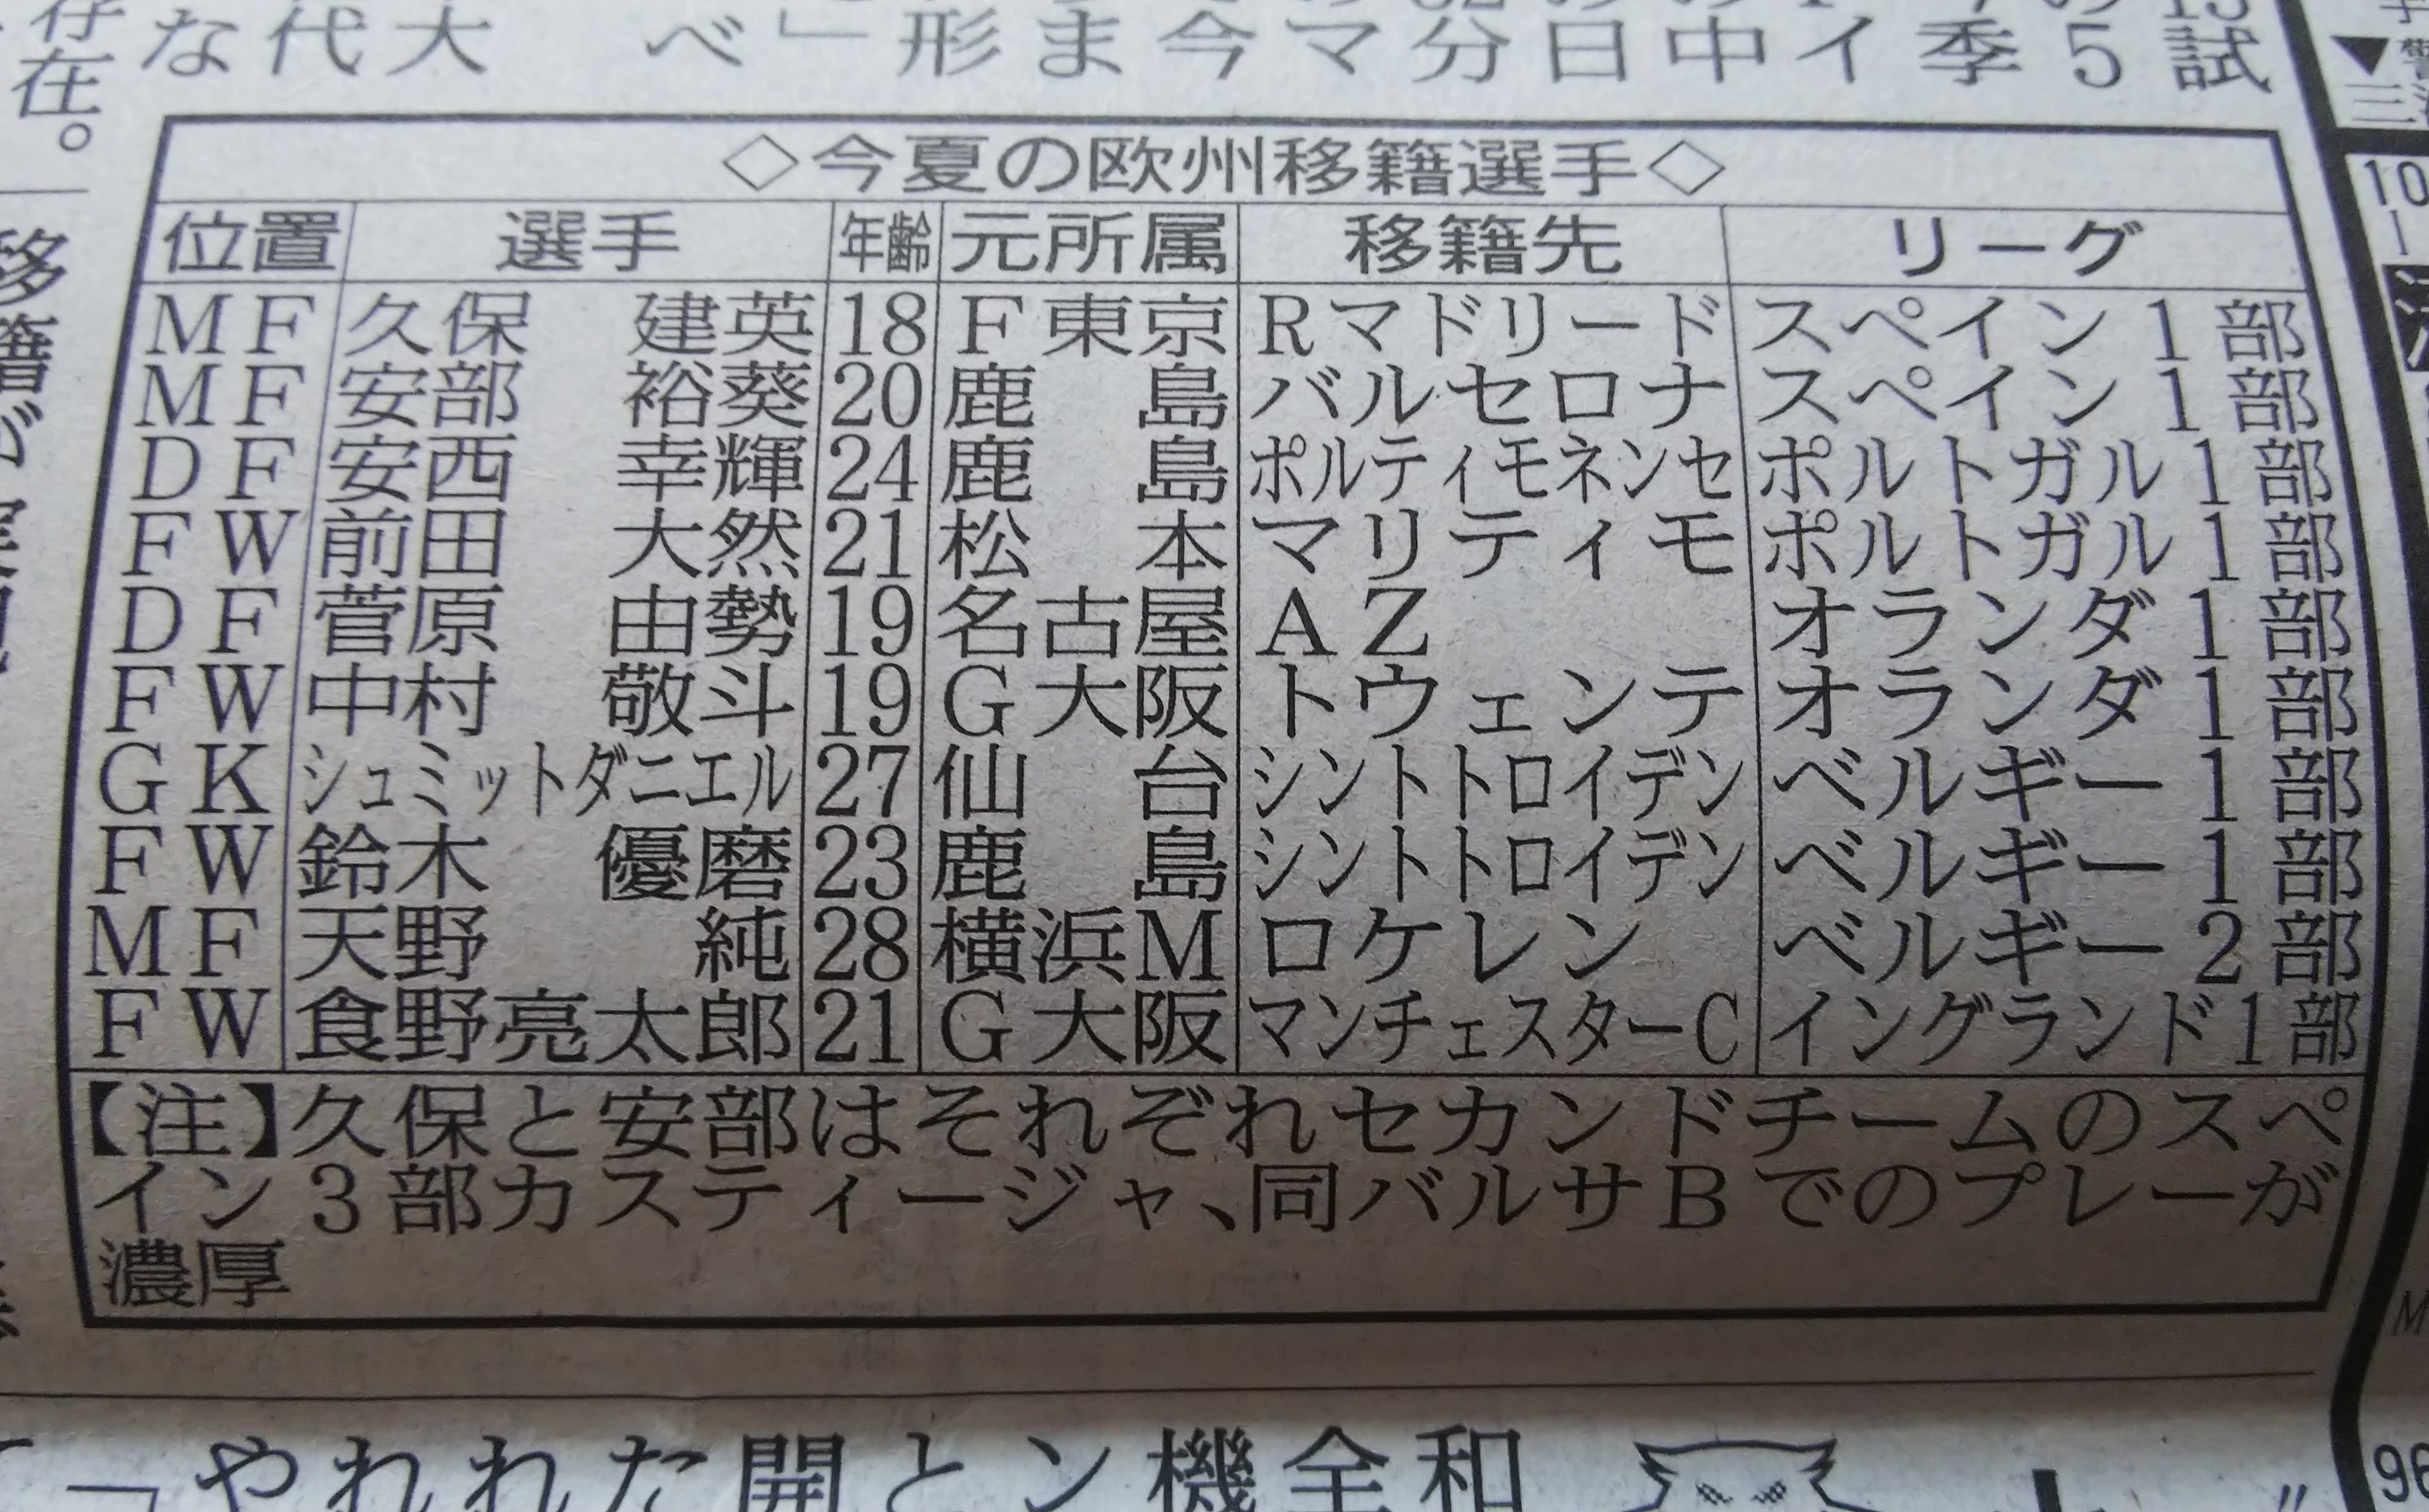 大代な
べ」形ま今マ分日中イ季5試
存在。
◇今夏の欧州移籍選手◇
位置 選手 年齢 元所属 移籍先 リーグ
MF 久保 建英 18 F東京 Rマドリード スペイン1部
MF 安部 裕葵 20 鹿島 バルセロナ スペイン1部
DF 安西 幸輝 24 鹿島 ポルティモネンセ ポルトガル1部
FW 前田 大然 21 松本 マリティモ ポルトガル1部
DF 菅原 由勢 19 名古屋 AZ オランダ1部
FW 中村 敬斗 19 G大阪 トウェンテ オランダ1部
GK シュミットダニエル 27 仙台 シントトロイデン ベルギー1部
FW 鈴木 優磨 23 鹿島 シントトロイデン ベルギー1部
MF 天野 純 28 横浜M ロケレン ベルギー2部
FW 食野亮太郎 21 G大阪 マンチェスターC イングランド1部
【注】久保と安部はそれぞれセカンドチームのスペ
イン3部カスティージャ、同バルサBでのプレーが
濃厚
移籍が
「やれれた開とン機全和
96